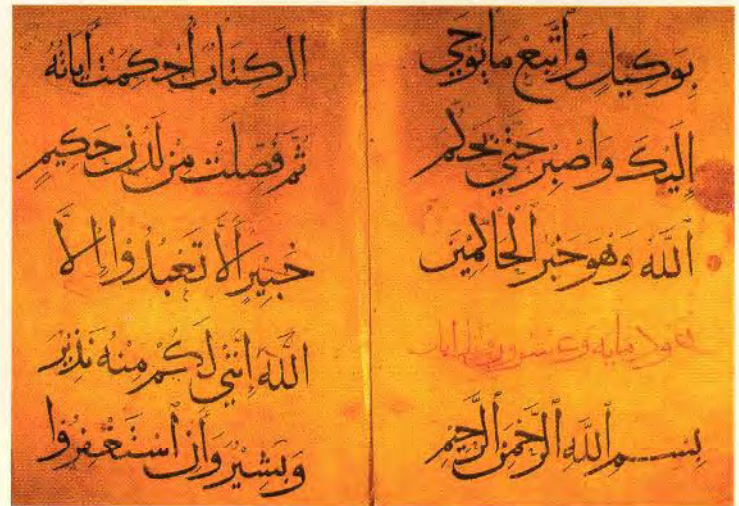 بِوَكِيلٍ وَاتَّبِعْ مَا يُوحَى
إِلَيْكَ وَاصْبِرْ حَتَّى يَحْكُمَ
اللَّهُ وَهُوَ خَيْرُ الْحَاكِمِينَ
مايه وعشرون
بِسْمِ اللَّهِ الرَّحْمَنِ الرَّحِيمِ
الر كِتَابٌ أُحْكِمَتْ آيَاتُهُ
ثُمَّ فُصِّلَتْ مِنْ لَدُنْ حَكِيمٍ
خَبِيرٍ أَلَّا تَعْبُدُوا إِلَّا
اللَّهَ إِنَّنِي لَكُمْ مِنْهُ نَذِيرٌ
وَبَشِيرٌ وَأَنِ اسْتَغْفِرُوا